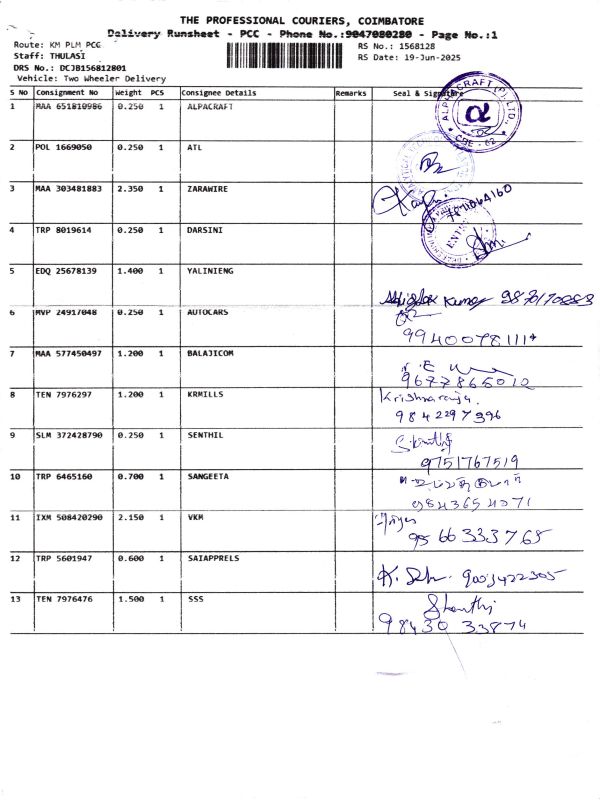 THE PROFESSIONAL COURIERS, COIMBATORE
Delivery Runsheet - PCC - Phone No.:9047080280 - Page No.:1
Route: KM PLM PCC RS No.: 1568128
Staff: THULASI RS Date: 19-Jun-2025
DRS No.: DCJB156812801
Vehicle: Two Wheeler Delivery
S No Consignment No Weight PCS Consignee Details Remarks Seal & Signature
1 MAA 651810986 0.250 1 ALPACRAFT
ALPHA CRAFT (P) LTD., CBE - 62
2 POL 1669050 0.250 1 ATL
3 MAA 303481883 2.350 1 ZARAWIRE
4 TRP 8019614 0.250 1 DARSINI
5 EDQ 25678139 1.400 1 YALINIENG
Kumar
6 MVP 24917048 0.250 1 AUTOCARS
7 MAA 577450497 1.200 1 BALAJICOM
9677865012
8 TEN 7976297 1.200 1 KRMILLS Krishnaraju.
9842297396
9 SLM 372428790 0.250 1 SENTHIL
9751767519
10 TRP 6465160 0.700 1 SANGEETA
9843654071
11 IXM 508420290 2.150 1 VKM
9566333765
12 TRP 5601947 0.600 1 SAIAPPRELS
13 TEN 7976476 1.500 1 SSS Shanthi
98430 33874